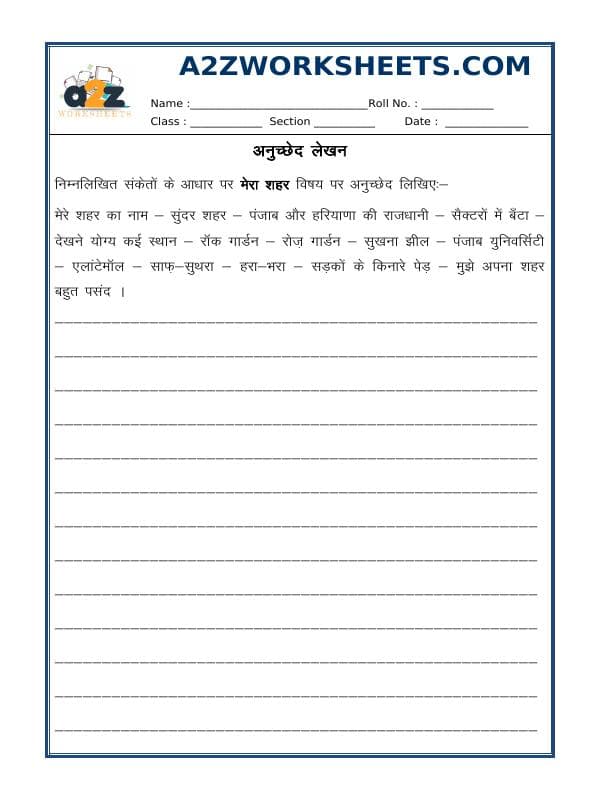 A2ZWORKSHEETS.COM
a2z
WORKSHEETS
Name :______________________________Roll No. : ____________
Class : ____________ Section __________ Date : ______________
अनुच्छेद लेखन
निम्नलिखित संकेतों के आधार पर मेरा शहर विषय पर अनुच्छेद लिखिए:–
मेरे शहर का नाम – सुंदर शहर – पंजाब और हरियाणा की राजधानी – सैक्टरों में बँटा –
देखने योग्य कई स्थान – रॉक गार्डन – रोज़ गार्डन – सुखना झील – पंजाब युनिवर्सिटी
– एलांटेमॉल – साफ़–सुथरा – हरा–भरा – सड़कों के किनारे पेड़ – मुझे अपना शहर
बहुत पसंद ।